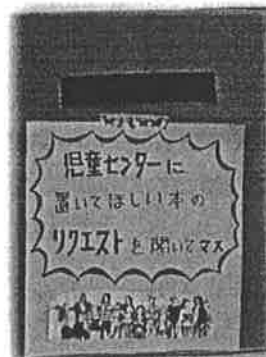 児童センターに
置いてほしい本の
リクエストを聞いてマス